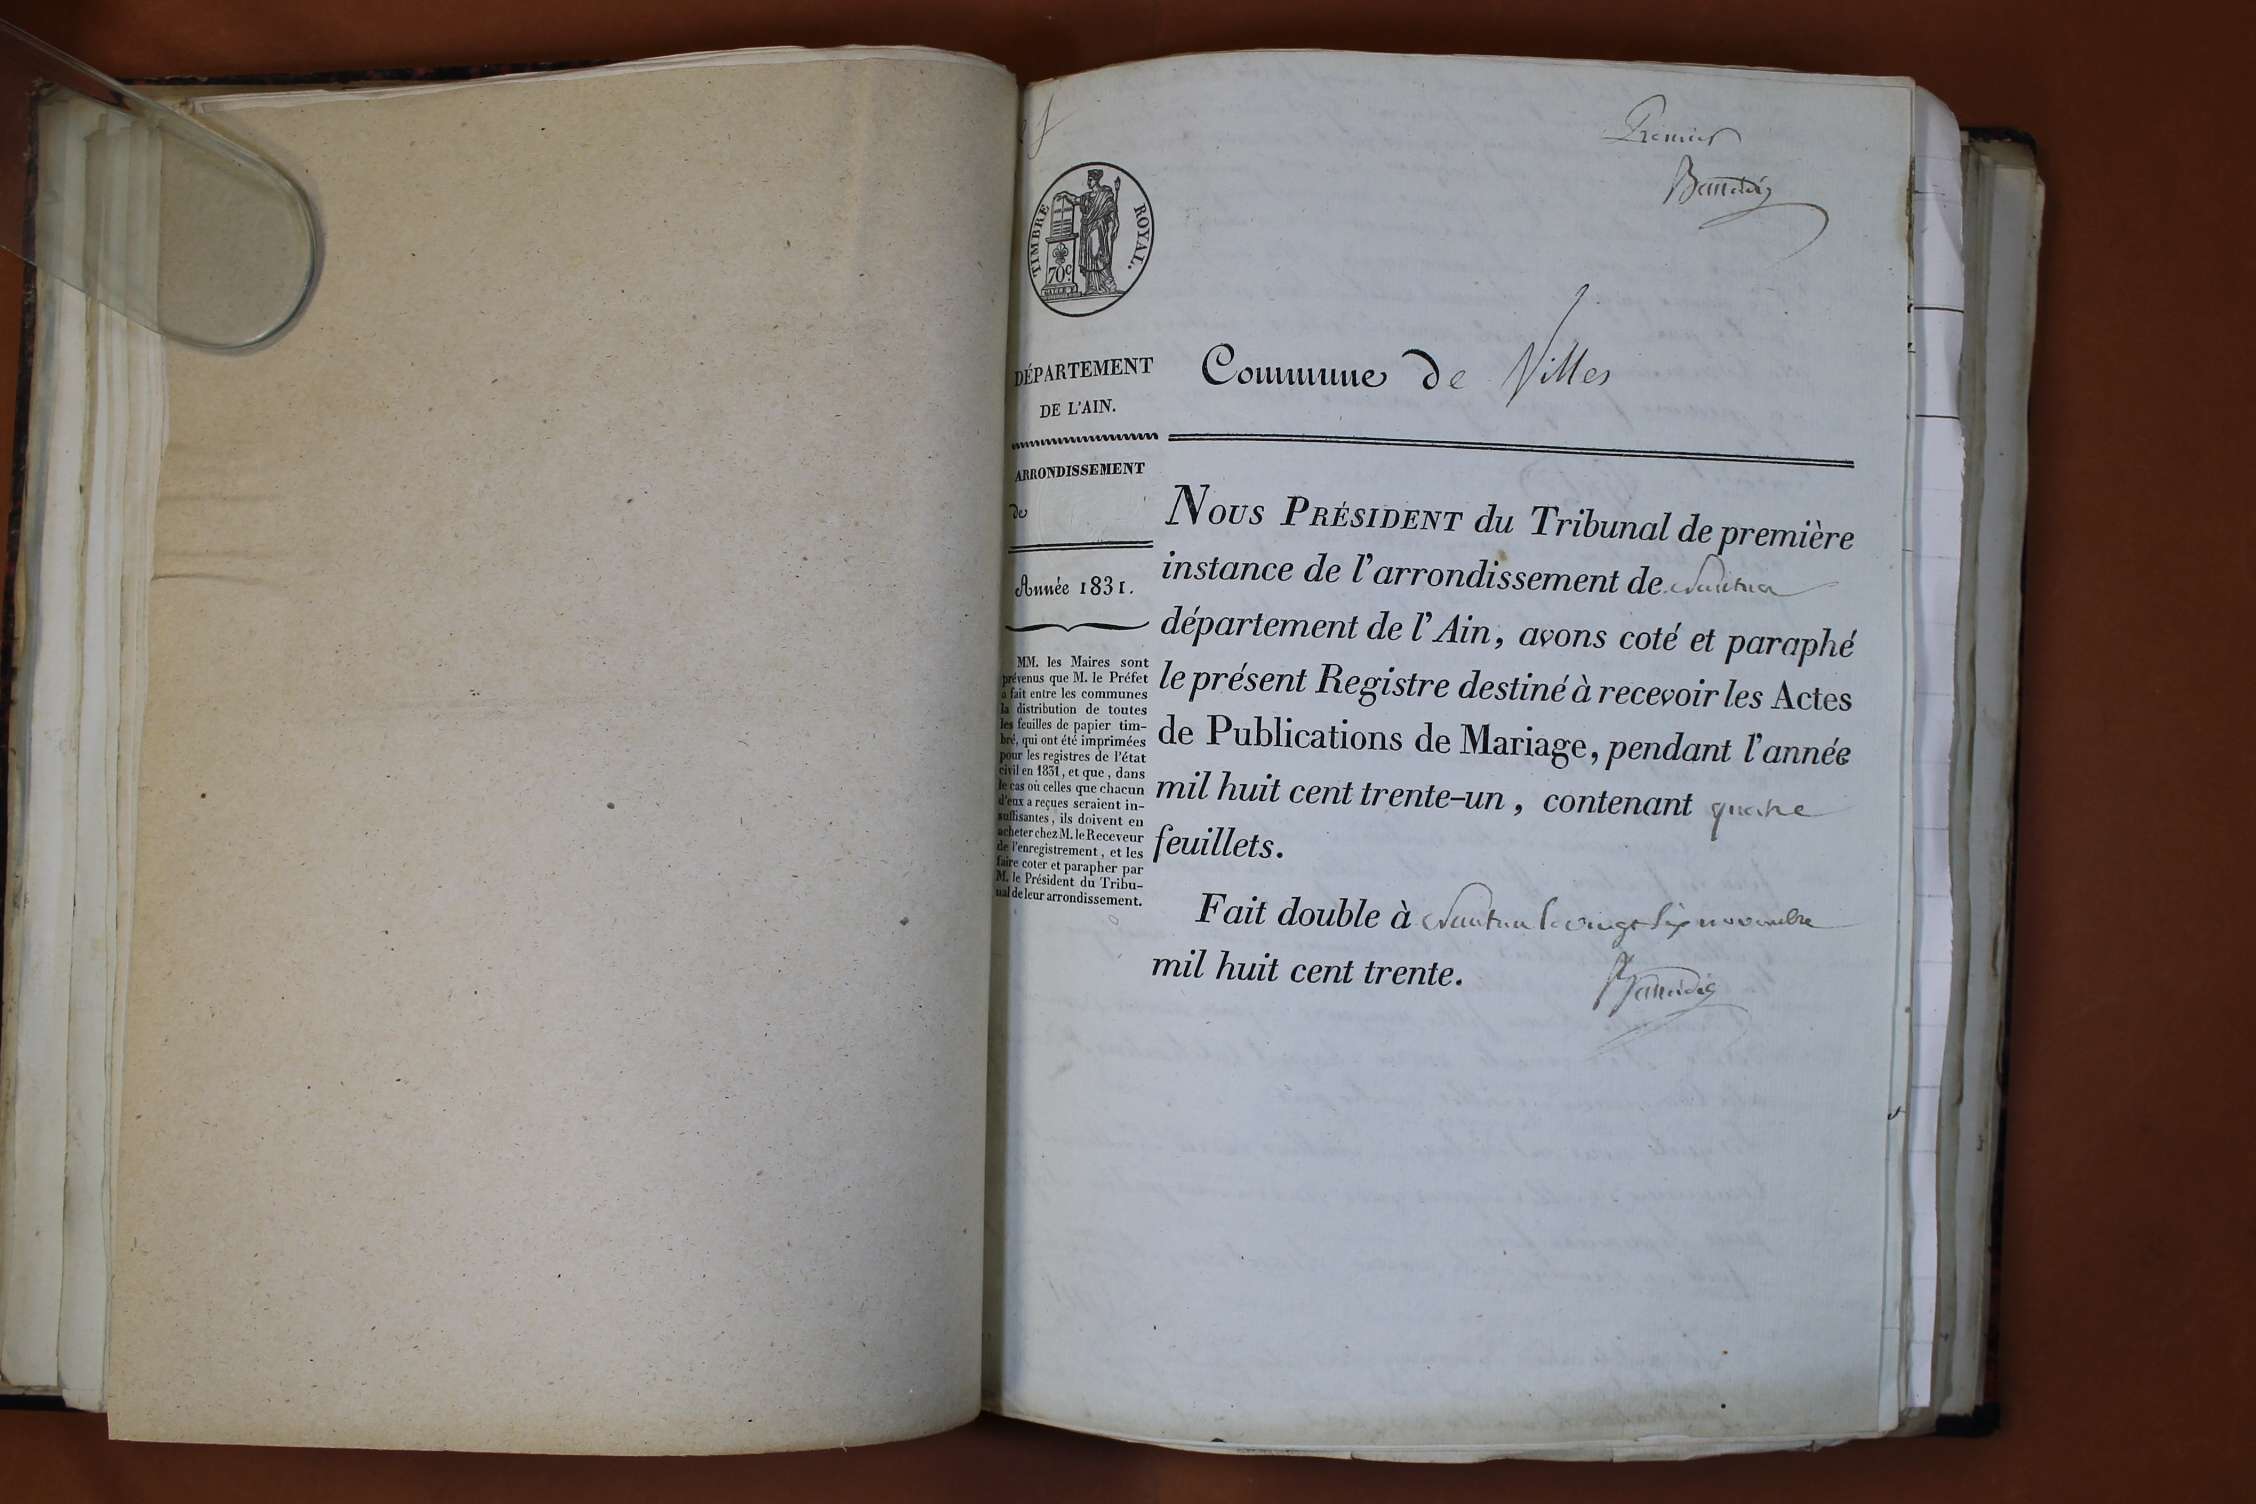 Premier
TIMBRE ROYAL.
70c
DÉPARTEMENT
DE L'AIN.
ARRONDISSEMENT
de
Année 1831.
MM. les Maires sont
prévenus que M. le Préfet
a fait entre les communes
la distribution de toutes
les feuilles de papier tim-
bré, qui ont été imprimées
pour les registres de l'état
civil en 1831, et que, dans
le cas où celles que chacun
d'eux a reçues seraient in-
suffisantes, ils doivent en
acheter chez M. le Receveur
de l'enregistrement, et les
faire coter et parapher par
M. le Président du Tribu-
nal de leur arrondissement.
Commune de Villes
NOUS PRÉSIDENT du Tribunal de première
instance de l'arrondissement de Nantua
département de l'Ain, avons coté et paraphé
le présent Registre destiné à recevoir les Actes
de Publications de Mariage, pendant l'année
mil huit cent trente-un, contenant quatre
feuillets.
Fait double à Nantua le vingt six novembre
mil huit cent trente.